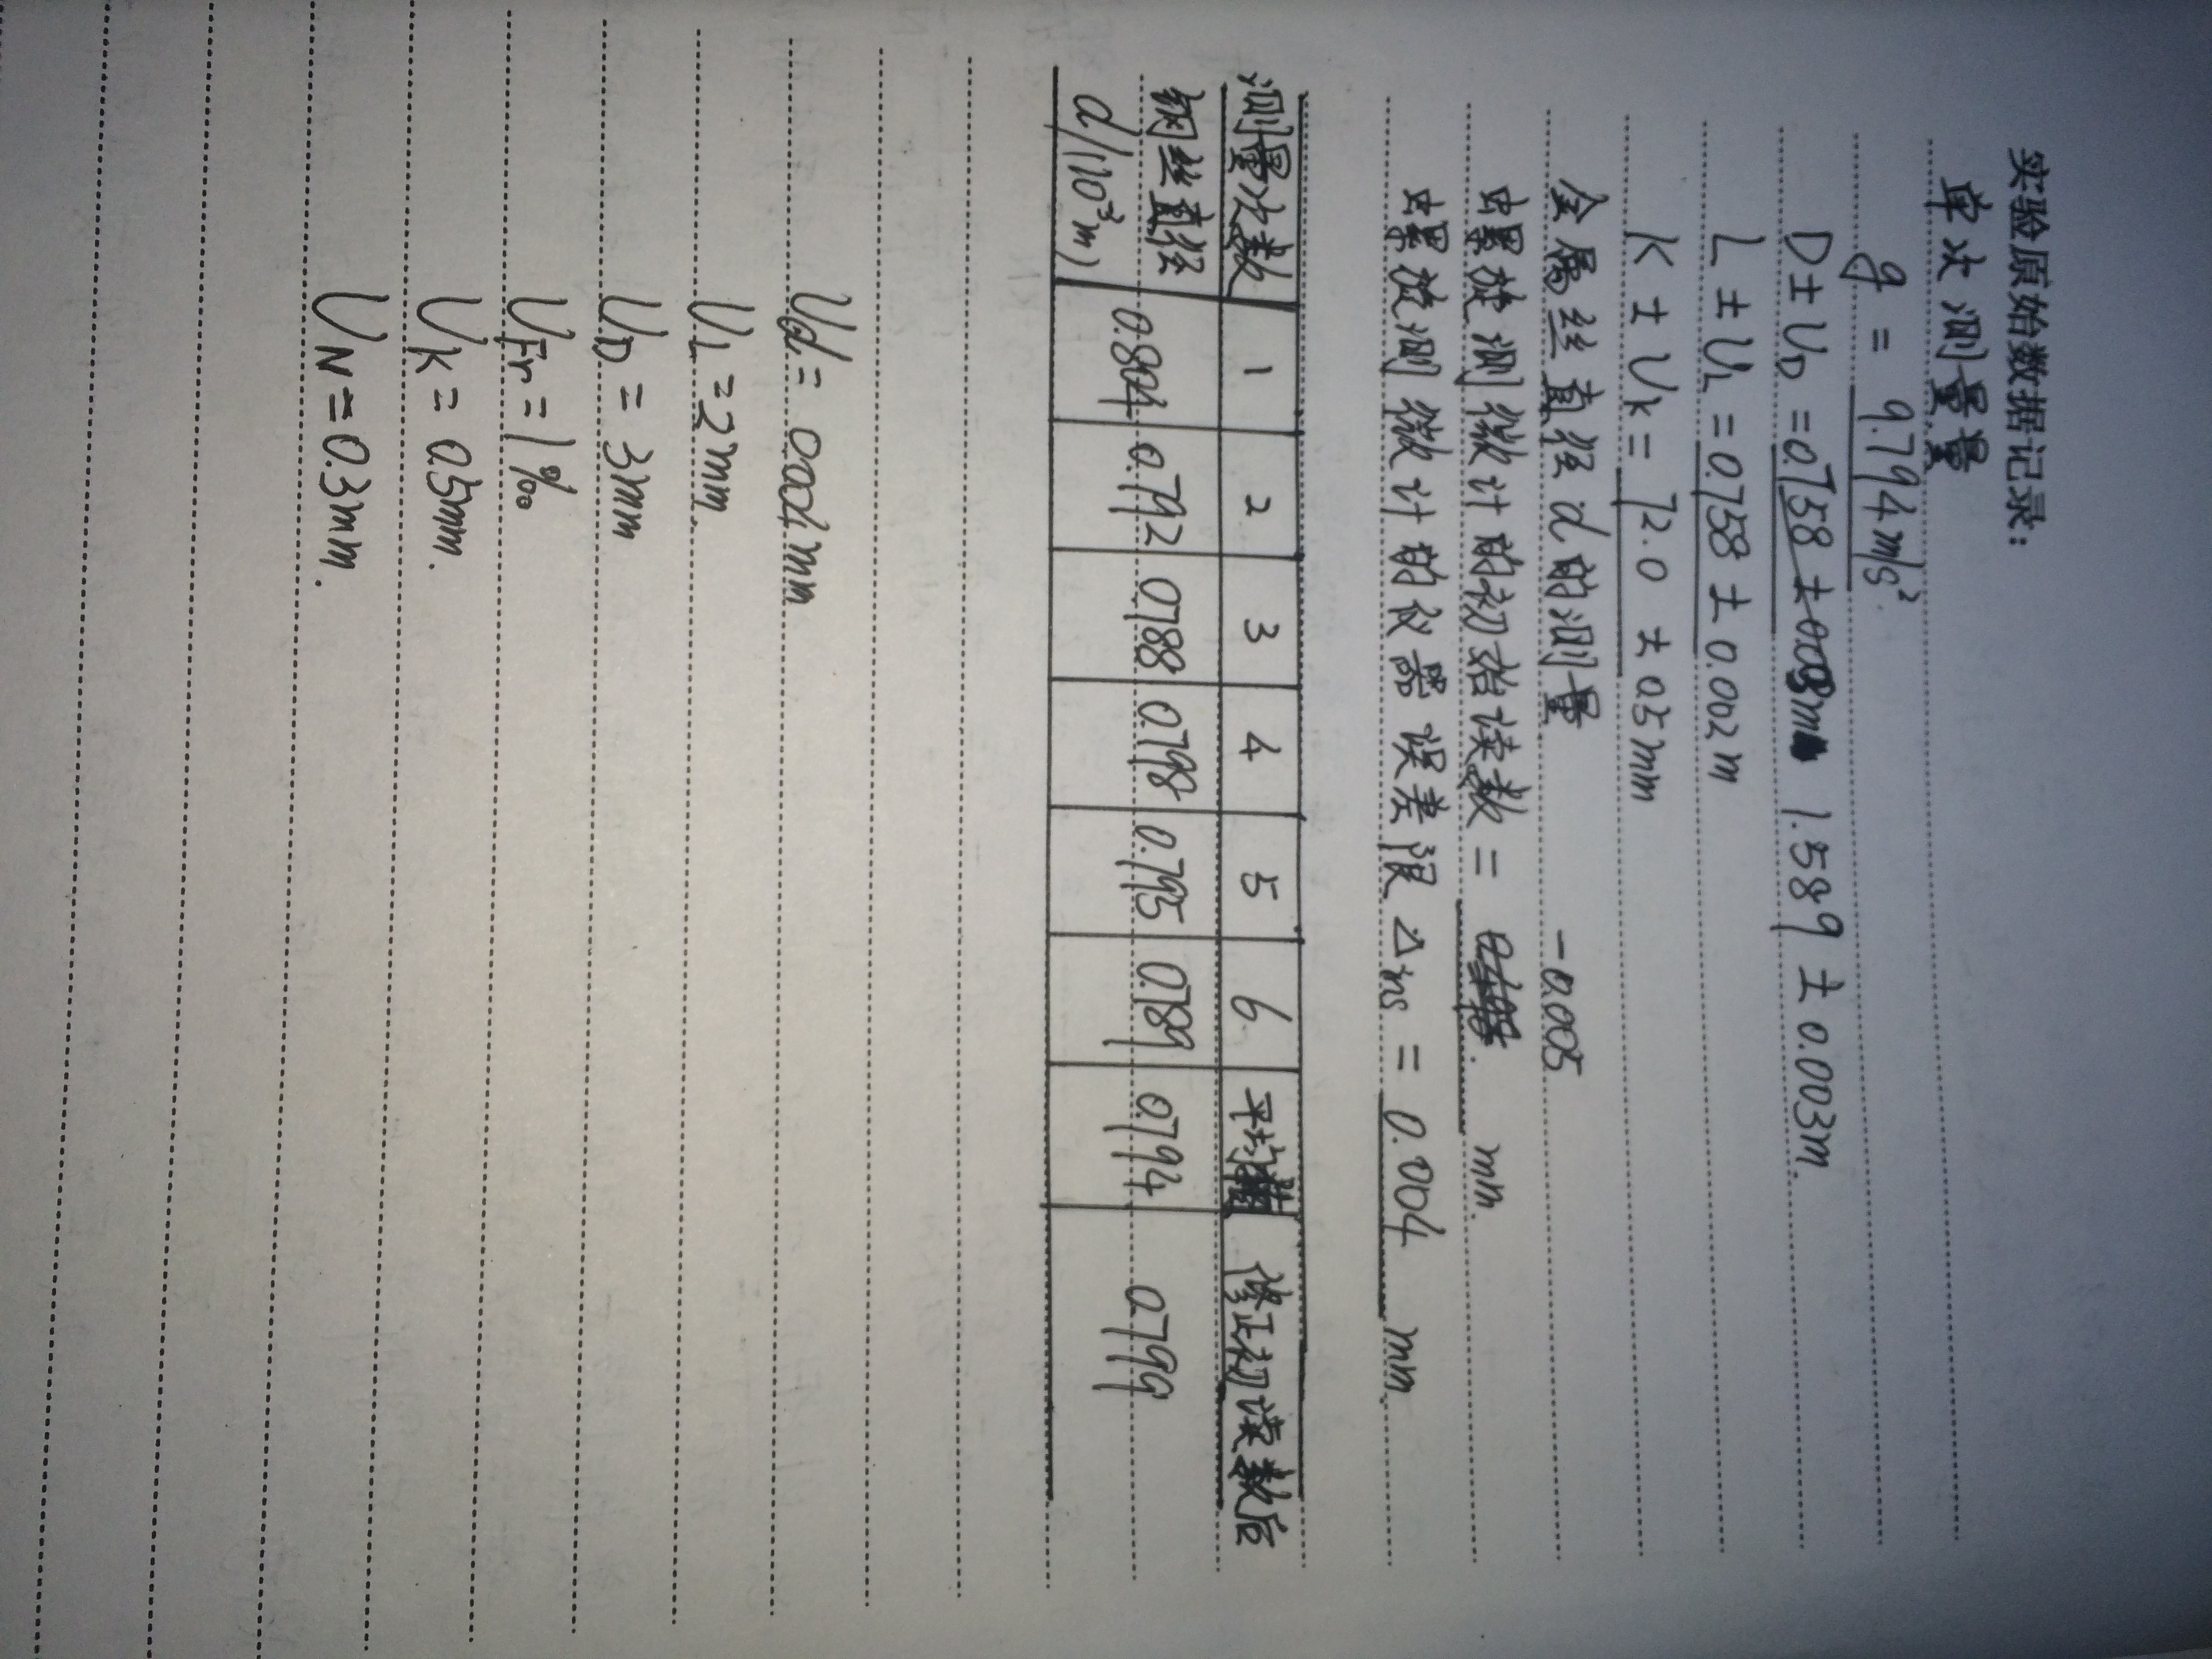 实验原始数据记录:
单次测量量
g = 9.794 m/s²
D ± U_D = 0.758 ± 0.003m 1.589 ± 0.003m.
L ± U_L = 0.758 ± 0.002m
K ± U_k = 72.0 ± 0.5mm
金属丝直径d的测量
-0.005
螺旋测微计的初始读数 = mm.
螺旋测微计的仪器误差限 Δins = 0.004 mm.
测量次数 1 2 3 4 5 6 平均 修正初读数后
钢丝直径 d/(10³m) 0.804 0.792 0.788 0.798 0.795 0.789 0.794 0.799
Ud = 0.004mm
U_L = 2mm.
U_D = 3mm
U_Fr = 1‰
U_K = 0.5mm.
U_N = 0.3mm.